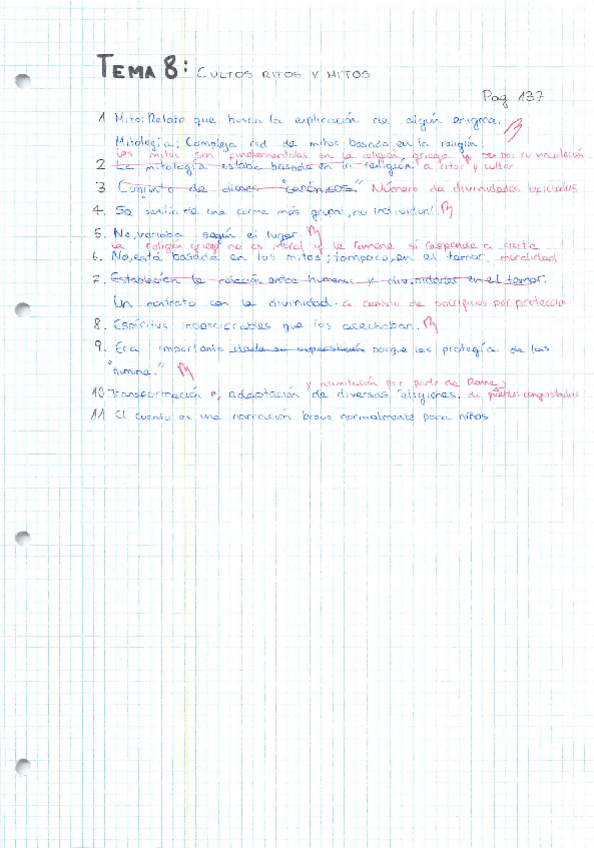 TEMA 8: CULTOS RITOS Y MITOS
Pag 137
1 Mito: Relato que busca la explicación de algún enigma.
Mitología: Compleja red de mitos basada en la religión.
Los mitos son fundamentales en la religión griega y se por su vinculación
2 La mitología estaba basada en la religión a ritos y cultos
3 Conjunto de dioses "canónicos." Número de divinidades oficiales
4. Se sentía de una forma más grupal, no individual.
5. No, variaba según el lugar.
La religión griega no es moral y la romana sí responde a cierta
6. No, está basada en los mitos; tampoco, en el temor. moralidad
7. Establecían la relación entre humanos y divinidades en el temor.
Un contrato con la divinidad. a cambio de sacrificios por protección
8. Espíritus que los acechaban.
9. Era importante porque les protegía de las
"numina."
y asimilación por parte de Roma,
10 Transformación, adaptación de diversas religiones. de pueblos conquistados
11 El cuento es una narración breve normalmente para niños